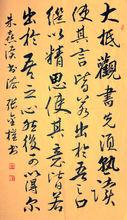 大抵觀書先須熟讀
使其言皆若出於吾之口
繼以精思使其意皆若
出於吾之心然後可以得爾
朱熹讀書法 張 書